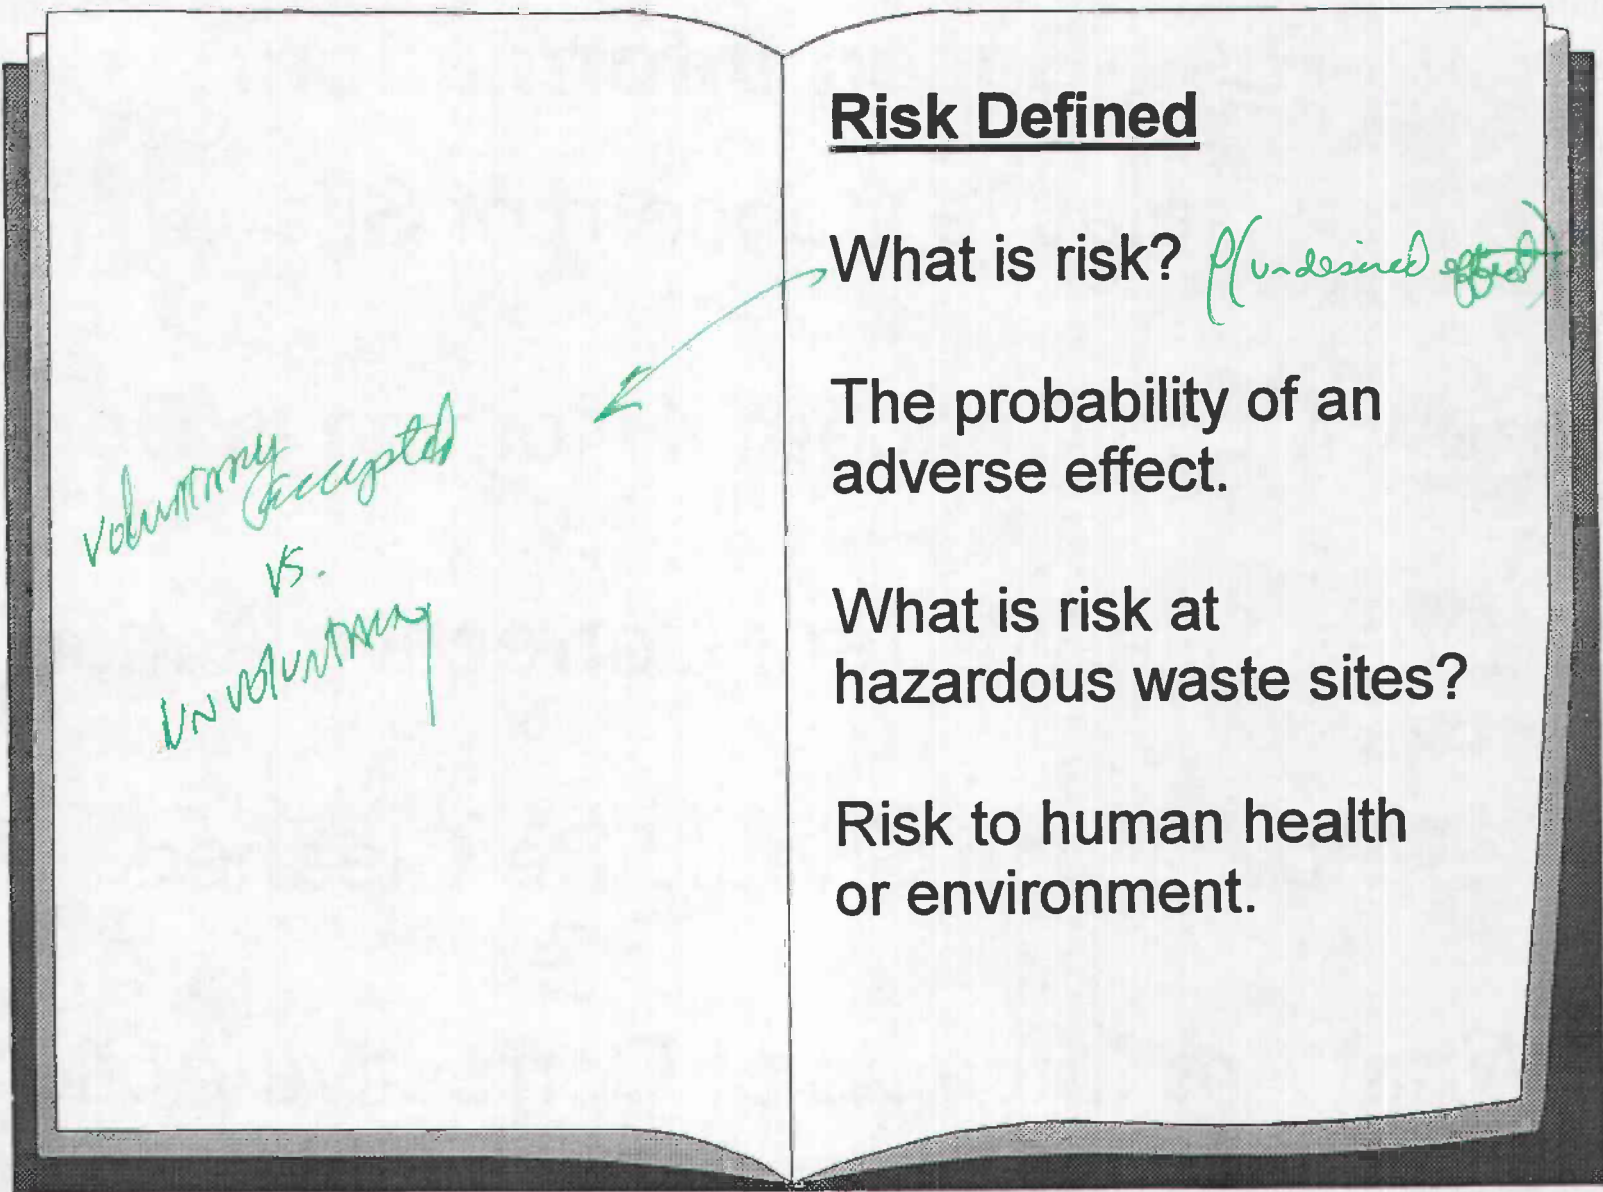 voluntary
accepted
vs.
unvoluntary
Risk Defined
What is risk? P(undesired effect)
The probability of an
adverse effect.
What is risk at
hazardous waste sites?
Risk to human health
or environment.